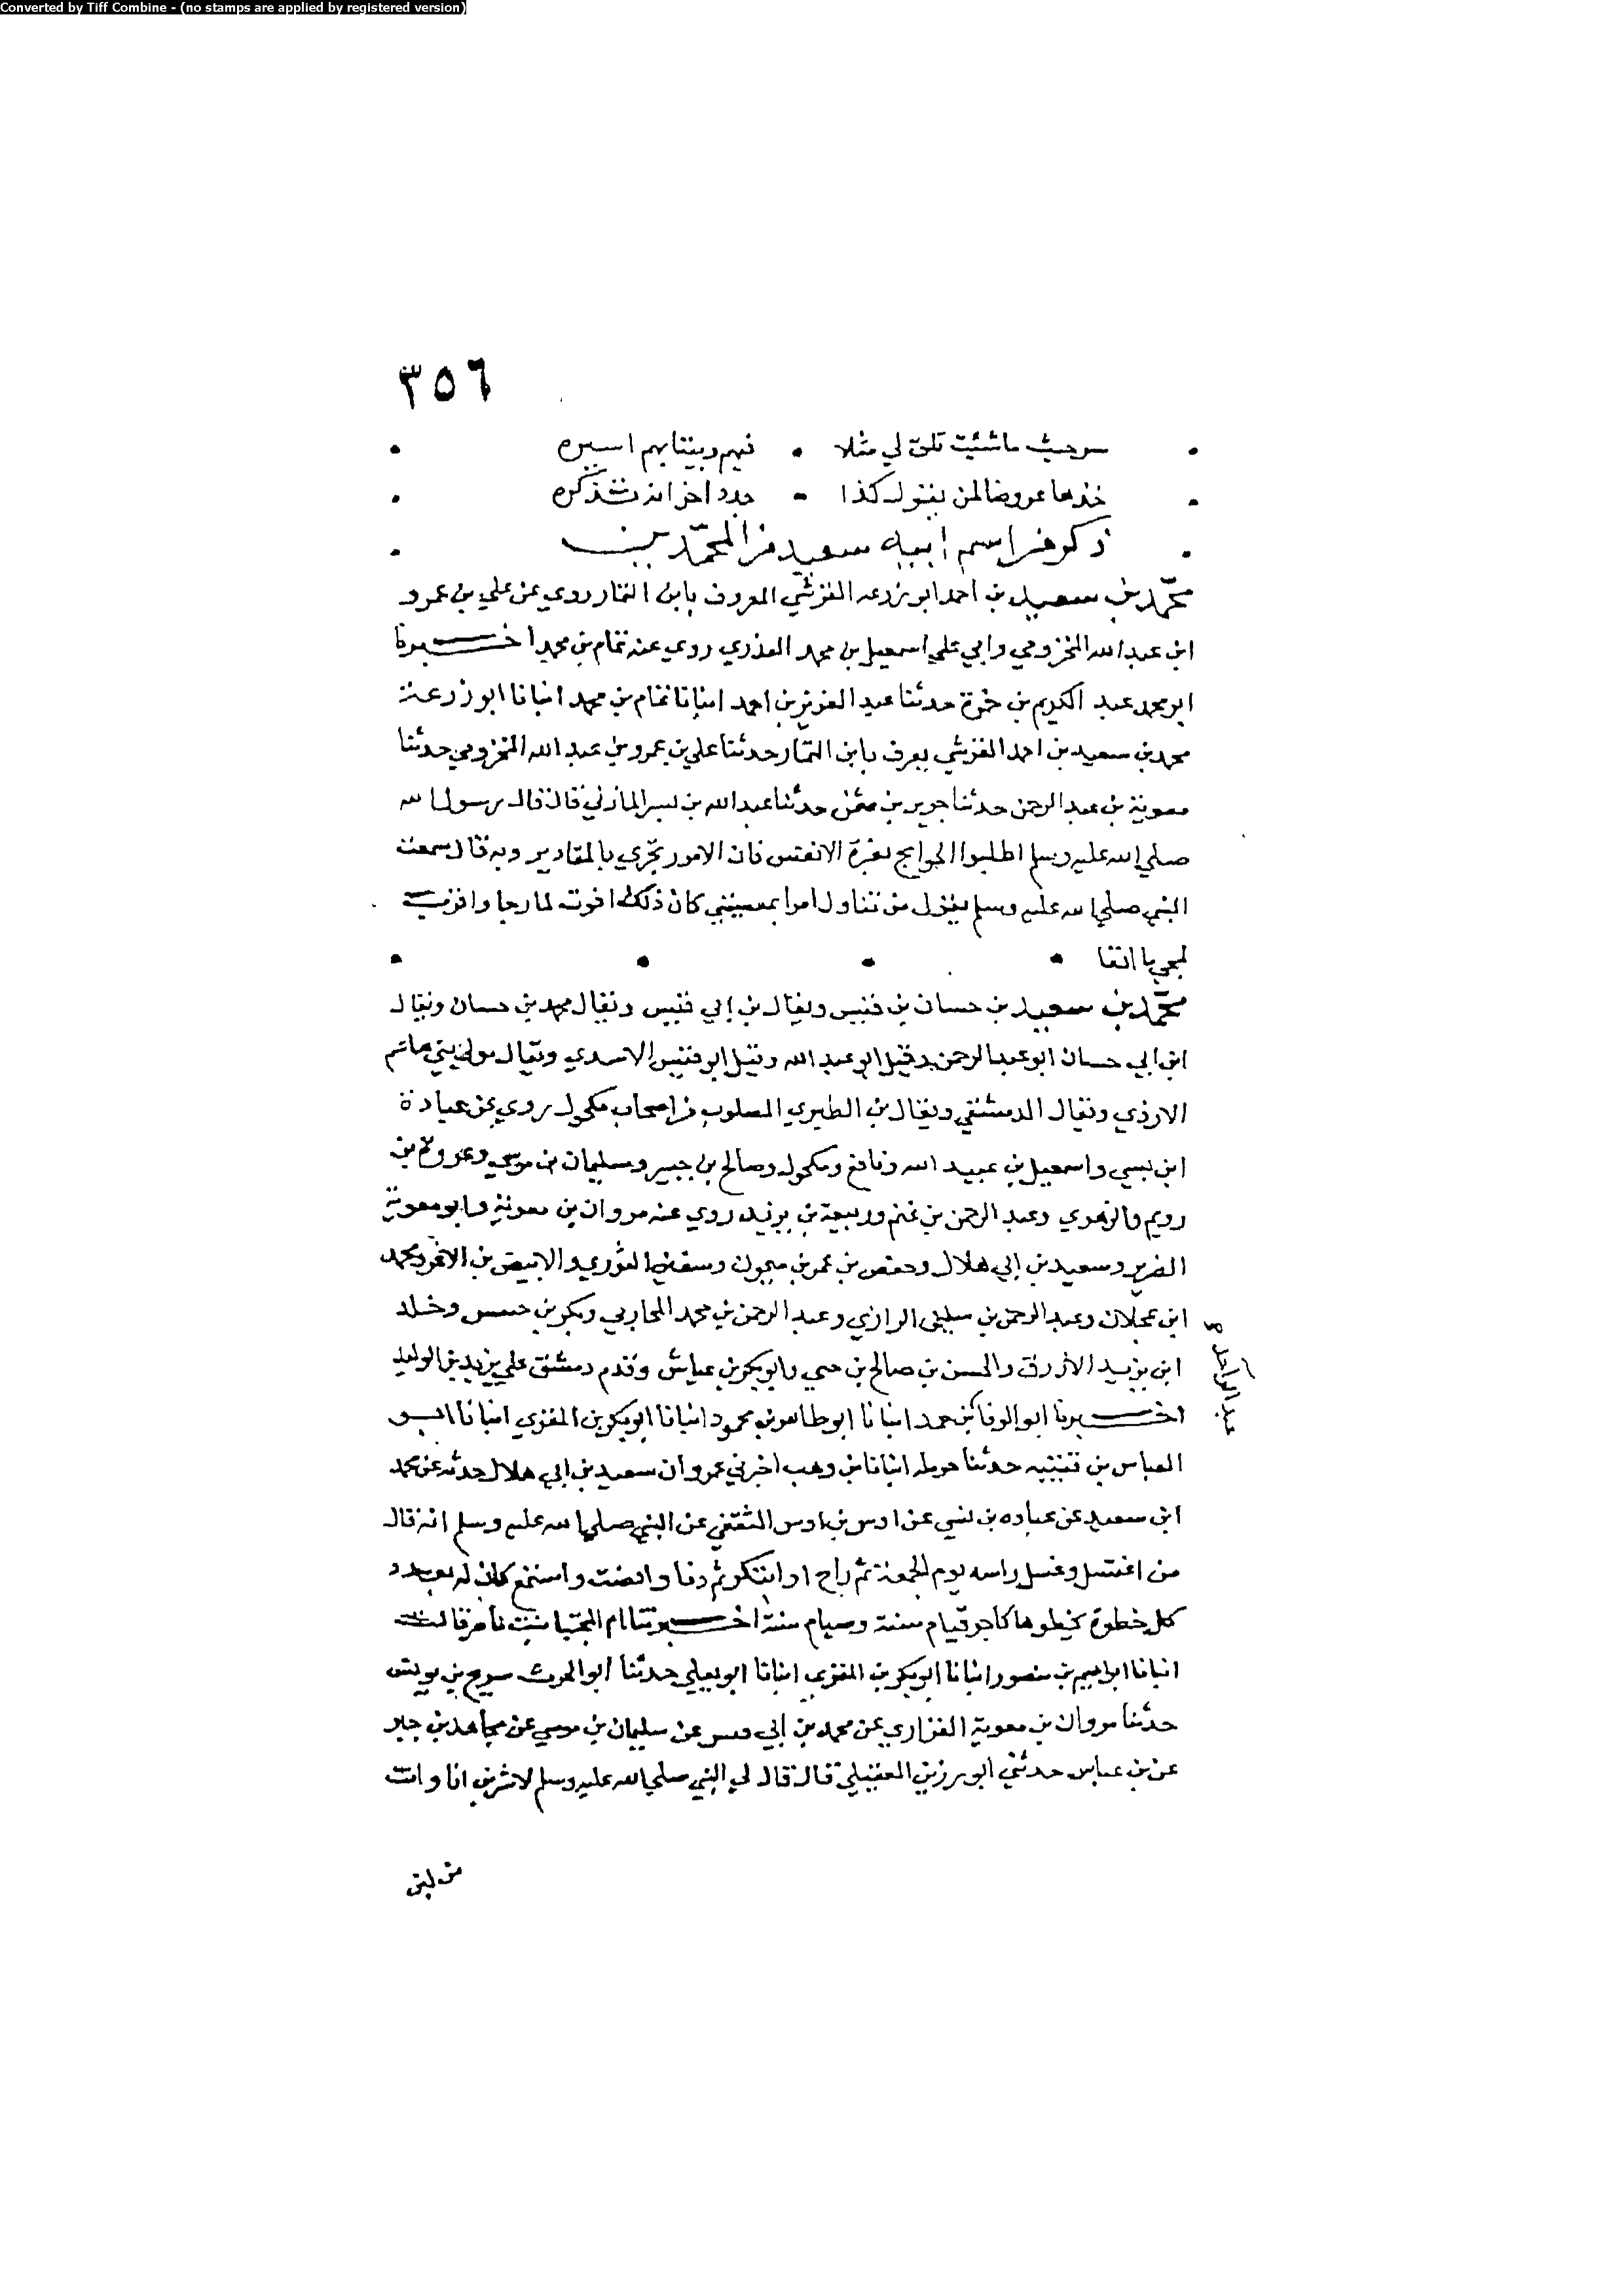 Converted by Tiff Combine - (no stamps are applied by registered version)
٣٥٦
سرحيث ما شئت تلق لي مثلا • فيهم وبيتا بهم اسيره
خذها عروضا لمن يقول كذا • جدد اخرانه تذكره
ذكر من اسم ابيه سعيد من المحمدين
محمد بن سعيد بن احمد ابو زرعه القرشي المعروف بابن التمار روي عن علي بن عمرو
ابن عبد الله المخزومي وابي علي اسمعيل بن محمد العذري روي عنه تمام بن محمد اخبرنا
ابو محمد عبد الكريم بن حمزة حدثنا عبد العزيز بن احمد انبانا تمام بن محمد انبانا ابو زرعة
محمد بن سعيد بن احمد القرشي يعرف بابن التمار حدثنا علي بن عمرو بن عبد الله المخزومي حدثنا
معوية بن عبد الرحمن حدثنا حرير بن عثمن حدثنا عبد الله بن بسر المازني قال قال رسول الله
صلي الله عليه وسلم اطلبوا الحوايج بعزة الانفس فان الامور تجري بالمقادير وبه قال سمعت
النبي صلي الله عليه وسلم يقول من تناول امرا بمعصية كان ذلك افوت لما رجا واقرب
لمجي ما اتقا
محمد بن سعيد بن حسان بن قيس ويقال بن ابي قيس ويقال محمد بن حسان ويقال
ابن ابي حسان ابو عبد الرحمن وقيل ابو عبد الله وقيل ابو قيس الاسدي ويقال مولي بني هاشم
الاردني ويقال الدمشقي ويقال بن الطبري المصلوب من اصحاب مكحول روي عن عبادة
ابن نسي واسمعيل بن عبيد الله ونافع ومكحول وصالح بن جبير وسليمان بن موسي وعروة بن
رويم والزهري وعبد الرحمن بن غنم وربيعة بن يزيد روي عنه مروان بن معوية وابو معوية
الضرير وسعيد بن ابي هلال وحفص بن عمر بن ميمون وسفين الثوري والابيض بن الاغر ومحمد
ابن عجلان وعبد الرحمن بن سليمن الرازي وعبد الرحمن بن محمد المحاربي وبكر بن خنيس وخلد
ابن يزيد الازرق والحسن بن صالح بن حي وابو بكر بن عياش وقدم دمشق علي يزيد بن الوليد
اخبرنا ابو الوفا بن حمد انبانا ابو طاهر بن محمود انبانا ابو بكر بن المقري انبانا ابو
عبد الواحد صح
العباس بن قتيبه حدثنا حرمله انبانا بن وهب اخبرني عمرو ان سعيد بن ابي هلال حدثه عن محمد
ابن سعيد عن عباده بن نسي عن اوس بن اوس الثقفي عن النبي صلي الله عليه وسلم انه قال
من اغتسل وغسل راسه يوم الجمعة ثم راح او ابتكر ثم دنا وانصت واستمع كان له بعدد
كل خطوة يخطوها كاجر قيام سنة وصيام سنة اخبرتنا ام المجتبا بنت ناصر قالت
انبانا ابراهيم بن منصور انبانا ابو بكر بن المقري انبانا ابو يعلي حدثنا ابو الحرث سريج بن يونس
حدثنا مروان بن معوية الفزاري عن محمد بن ابي قيس عن سليمان بن موسي عن مجاهد بن جبر
عن بن عباس حدثني ابو رزين العقيلي قال قال لي النبي صلي الله عليه وسلم لاشربن انا وانت
من لبن